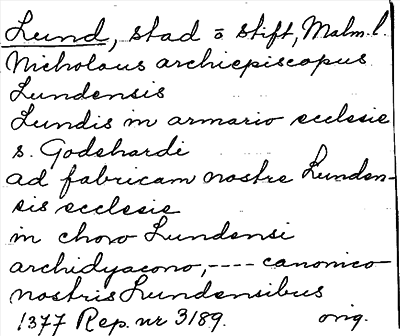 Lund, stad o stift, Malm. l.
Nicholaus archiepiscopus
Lundensis
Lundis in armario ecclesie
s. Godehardi
ad fabricam nostre Lunden-
sis ecclesie
in choro Lundensi
archidyacono, ---- canonico
nostris Lundensibus
1377 Rep. nr 3189. orig.